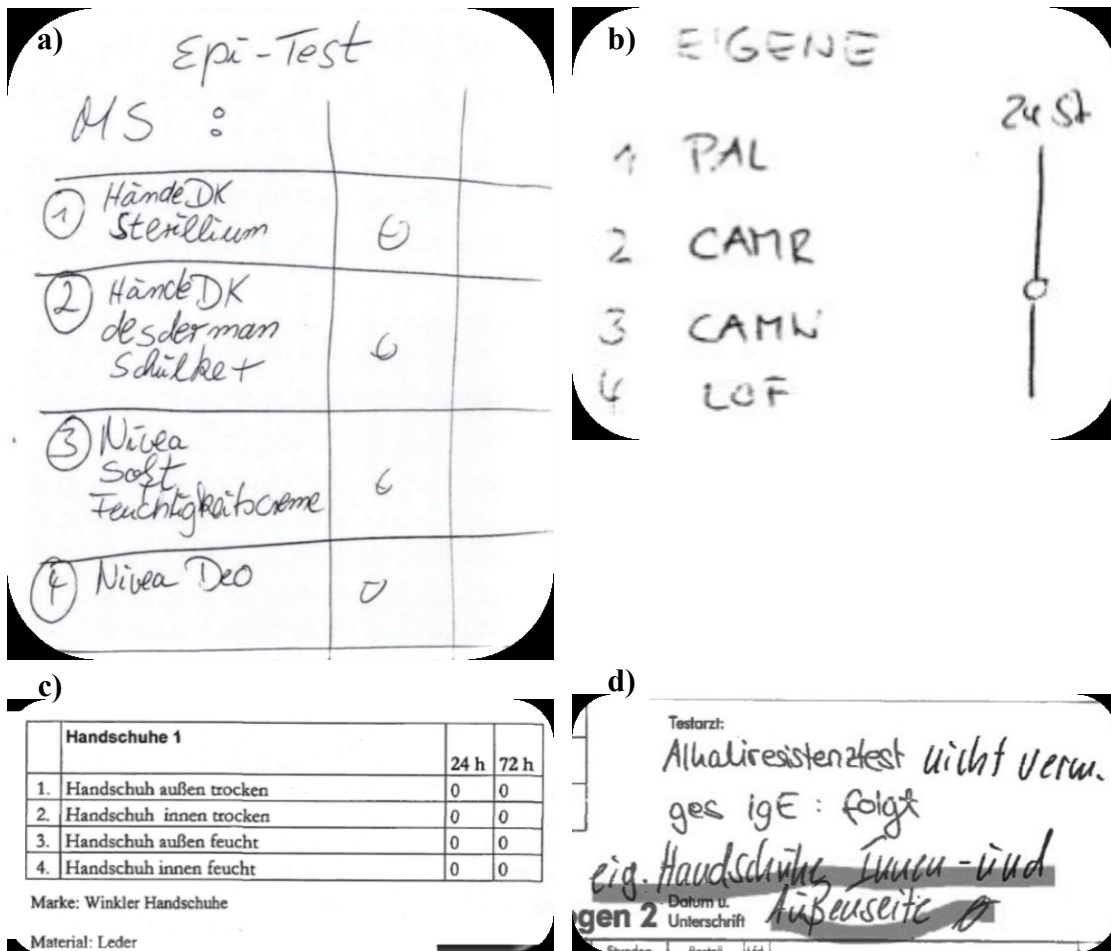 a)
Epi-Test
MS :
1 HändeDK
Sterillium
2 HändeDK
desderman
Schülke+
3 Nivea
Soft
Feuchtigkeitscreme
4 Nivea Deo
b)
EIGENE
24 St
1 PAL
2 CAMR
3 CAMN
4 LOF
c)
Handschuhe 1
24 h 72 h
1. Handschuh außen trocken 0 0
2. Handschuh innen trocken 0 0
3. Handschuh außen feucht 0 0
4. Handschuh innen feucht 0 0
Marke: Winkler Handschuhe
Material: Leder
d)
Testarzt:
Alkaliresistenztest nicht verm.
ges IgE : folgt
eig. Handschuhe Innen- und
gen 2 Datum u. Unterschrift Außenseite